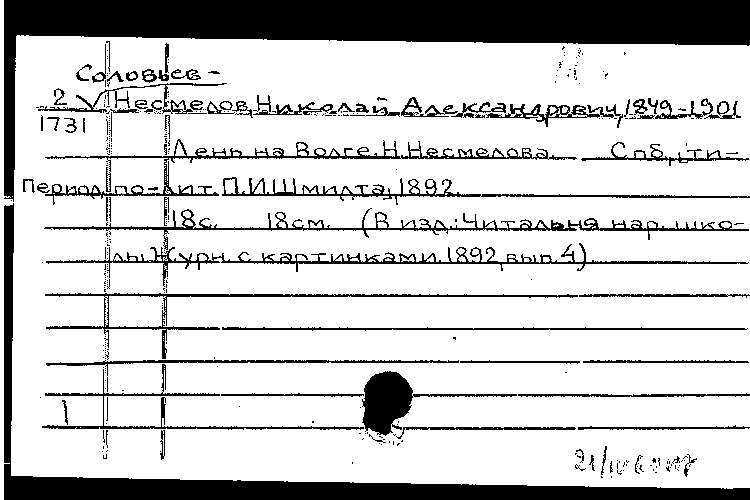 Соловьев-
2 Несмелов, Николай Александрович, 1849-1901
1731
День на Волге. Н. Несмелова. Спб., ти-
Период. по-лит. П.И. Шмидта, 1892.
18 с. 18 см. (В изд.: Читальня нар. шко-
лы. Журн. с картинками. 1892, вып. 4).
1
21/IV